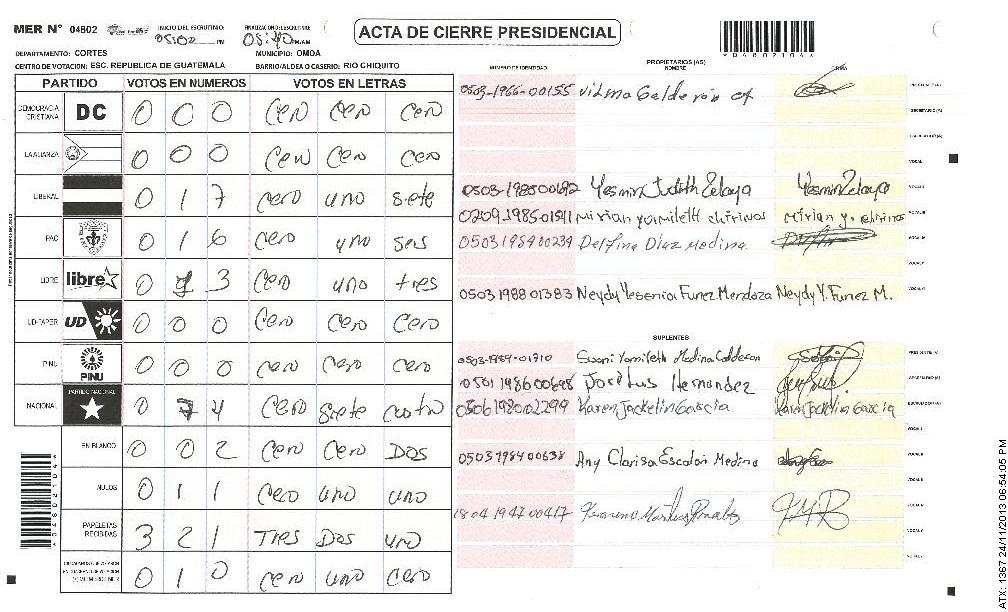 MER N° 04802 INICIO DEL ESCRUTINIO: 05:00 PM FINALIZACION DEL ESCRUTINIO: 05:40 PM/AM
ACTA DE CIERRE PRESIDENCIAL
*04802104*
DEPARTAMENTO: CORTES MUNICIPIO: OMOA
CENTRO DE VOTACION: ESC. REPUBLICA DE GUATEMALA BARRIO/ALDEA O CASERIO: RIO CHIQUITO
PARTIDO VOTOS EN NUMEROS VOTOS EN LETRAS
DEMOCRACIA CRISTIANA DC 0 0 0 Cero Cero Cero
LA ALIANZA 0 0 0 Cero Cero Cero
LIBERAL 0 1 7 Cero uno siete
PAC 0 1 6 Cero uno seis
LIBRE libre 0 1 3 Cero uno tres
UD-FAPER UD 0 0 0 Cero Cero Cero
PINU PINU 0 0 0 Cero Cero Cero
NACIONAL PARTIDO NACIONAL 0 7 4 Cero siete cuatro
EN BLANCO 0 0 2 Cero Cero Dos
NULOS 0 1 1 Cero uno uno
PAPELETAS RECIBIDAS 3 2 1 Tres Dos uno
0 1 0 Cero uno Cero
*04802104*
NUMERO DE IDENTIDAD PROPIETARIOS (AS) NOMBRE FIRMA
0503-1966-00155 Vilma Calderón PRESIDENTE(A)
SECRETARIO(A)
ESCRUTADOR(A)
VOCAL I
0503-198500192 Yesmin Judith Zelaya Yesmin Zelaya VOCAL II
0209-1985-01591 Mirian yamileth chirinos Mirian y. chirinos VOCAL III
0503198400239 Delfina Diaz Medina VOCAL IV
VOCAL V
0503198801383 Neydy Yesenia Funez Mendoza Neydy Y. Funez M.
SUPLENTES
0503-1984-01710 Suani Yamileth Medina Calderon PRESIDENTE(A)
0501198600698 Hernandez SECRETARIO(A)
0506198002299 Karen Jackelin Garcia Karen Jackelin Garcia ESCRUTADOR(A)
VOCAL I
0503198400638 Any Clarisa Escalon Medina VOCAL II
VOCAL III
1804194700417 VOCAL IV
VOCAL V
ATX: 1367 24/11/2013 06:54:05 PM